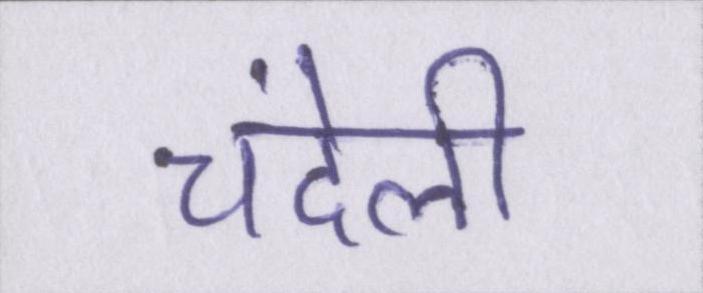 चंदेली